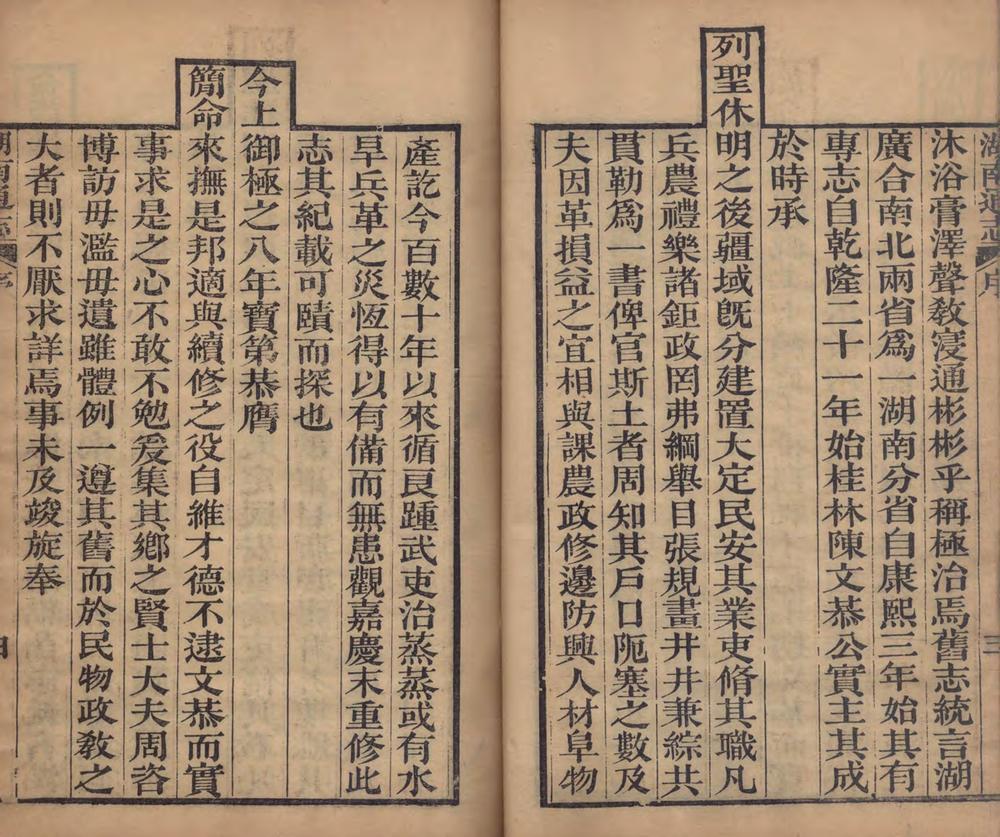 湖南通志 序 三
沐浴膏澤聲敎寖通彬彬乎稱極治焉舊志統言湖
廣合南北兩省爲一湖南分省自康熙三年始其有
專志自乾隆二十一年始桂林陳文恭公實主其成
於時承
列聖休明之後疆域旣分建置大定民安其業吏脩其職凡
兵農禮樂諸鉅政罔弗綱舉目張規畫井井兼綜共
貫勒爲一書俾官斯土者周知其戶口阨塞之數及
夫因革損益之宜相與課農政修邊防興人材阜物
產訖今百數十年以來循良踵武吏治蒸蒸或有水
旱兵革之災恆得以有備而無患觀嘉慶末重修此
志其紀載可賾而探也
今上御極之八年寶第恭膺
簡命來撫是邦適與續修之役自維才德不逮文恭而實
事求是之心不敢不勉爰集其鄉之賢士大夫周咨
博訪毋濫毋遺雖體例一遵其舊而於民物政敎之
大者則不厭求詳焉事未及竣旋奉
湖南通志 序 四